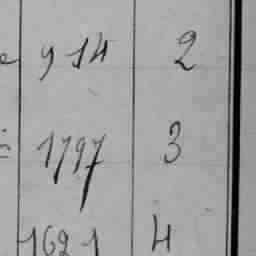 914 2
1797 3
1621 4